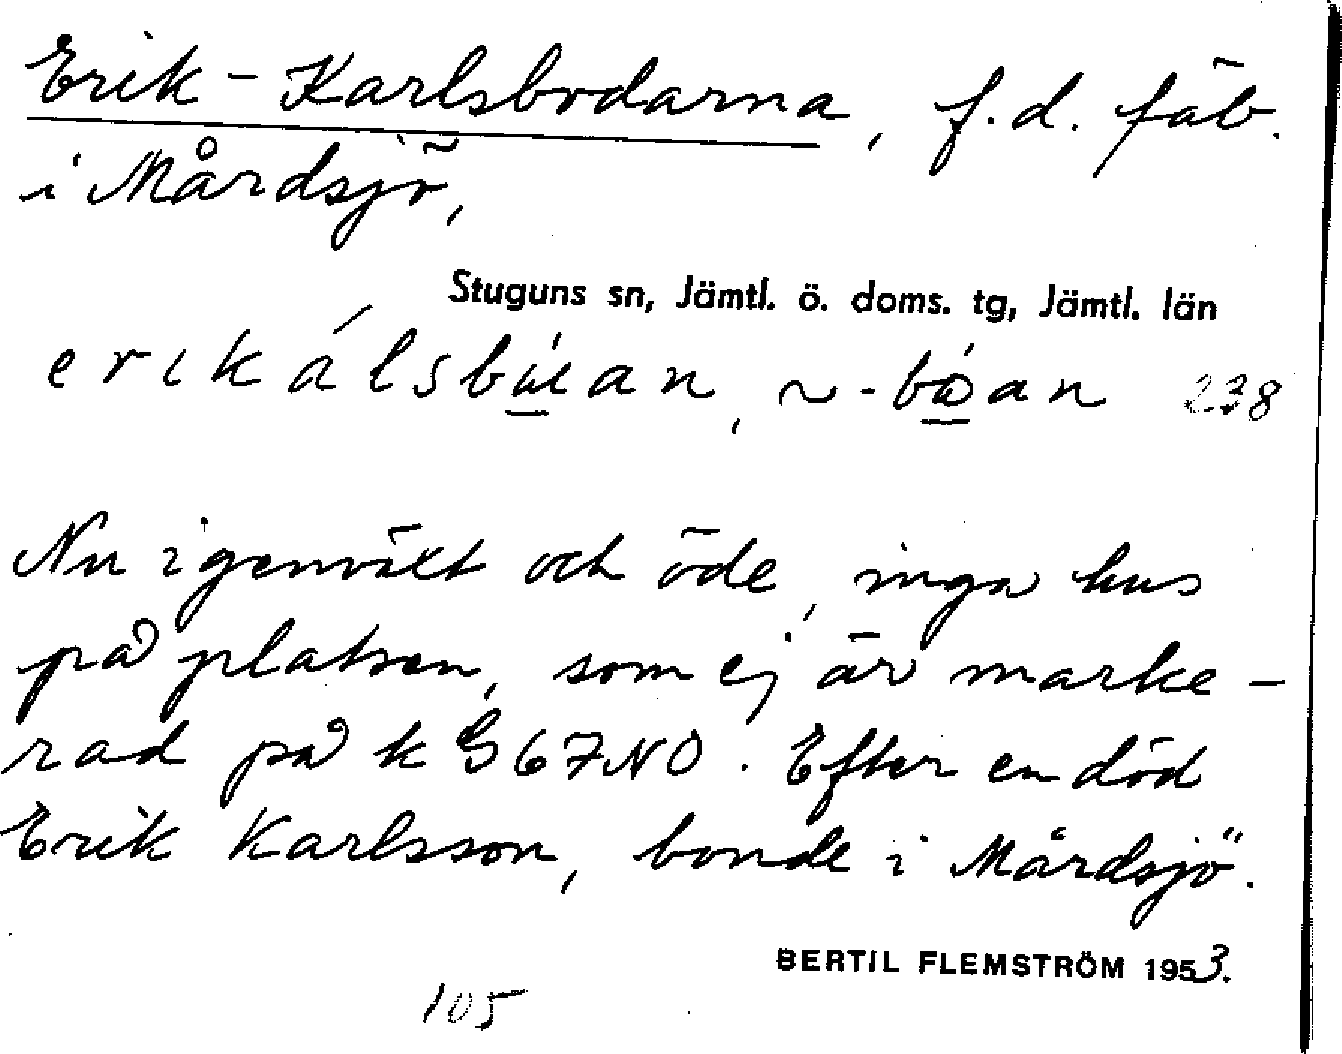 Erik-Karlsbodarna, f.d. fäb.
i Mårdsjö,
Stuguns sn, Jämtl. ö. doms. tg, Jämtl. län
238
Nu igenväxt och öde, inga hus
på platsen, som ej är marke-
rad på k G 67 NO. Efter en död
Erik Karlsson, bonde i Mårdsjö.
BERTIL FLEMSTRÖM 1953.
105